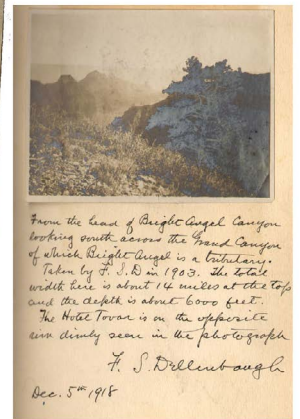 From the head of Bright Angel Canyon
looking south across the Grand Canyon
of which Bright Angel is a tributary.
Taken by F. S. D in 1903. The total
width here is about 14 miles at the top
and the depth is about 6000 feet.
The Hotel Tovar is on the opposite
rim dimly seen in the photograph
F. S. Dellenbaugh
Dec. 5th 1918